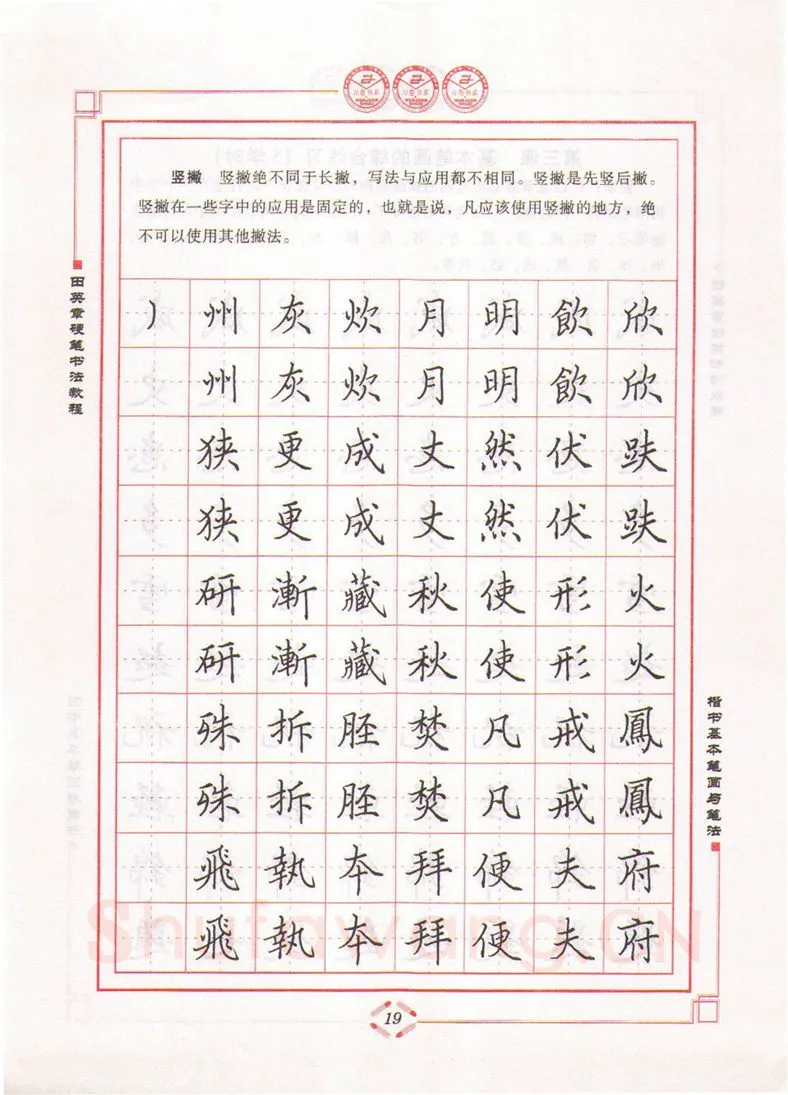 竖撇 竖撇绝不同于长撇，写法与应用都不相同。竖撇是先竖后撇。
竖撇在一些字中的应用是固定的，也就是说，凡应该使用竖撇的地方，绝
不可以使用其他撇法。
田英章硬笔书法教程
丿 州 灰 炊 月 明 飲 欣
州 灰 炊 月 明 飲 欣
狭 更 成 丈 然 伏 趺
狭 更 成 丈 然 伏 趺
研 漸 藏 秋 使 形 火
研 漸 藏 秋 使 形 火
殊 拆 胫 焚 凡 戒 鳳
殊 拆 胫 焚 凡 戒 鳳
飛 執 本 拜 便 夫 府
飛 執 本 拜 便 夫 府
楷书基本笔画与笔法
Shufawang.CN
19